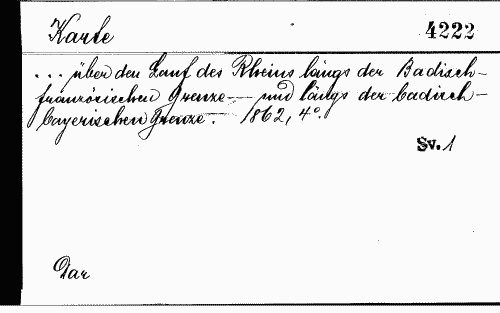 Karte 4222
... über den Lauf des Rheins längs der Badisch-
französischen Grenze — und längs der badisch-
bayerischen Grenze. 1862, 4°.
Sv. 1
Dar